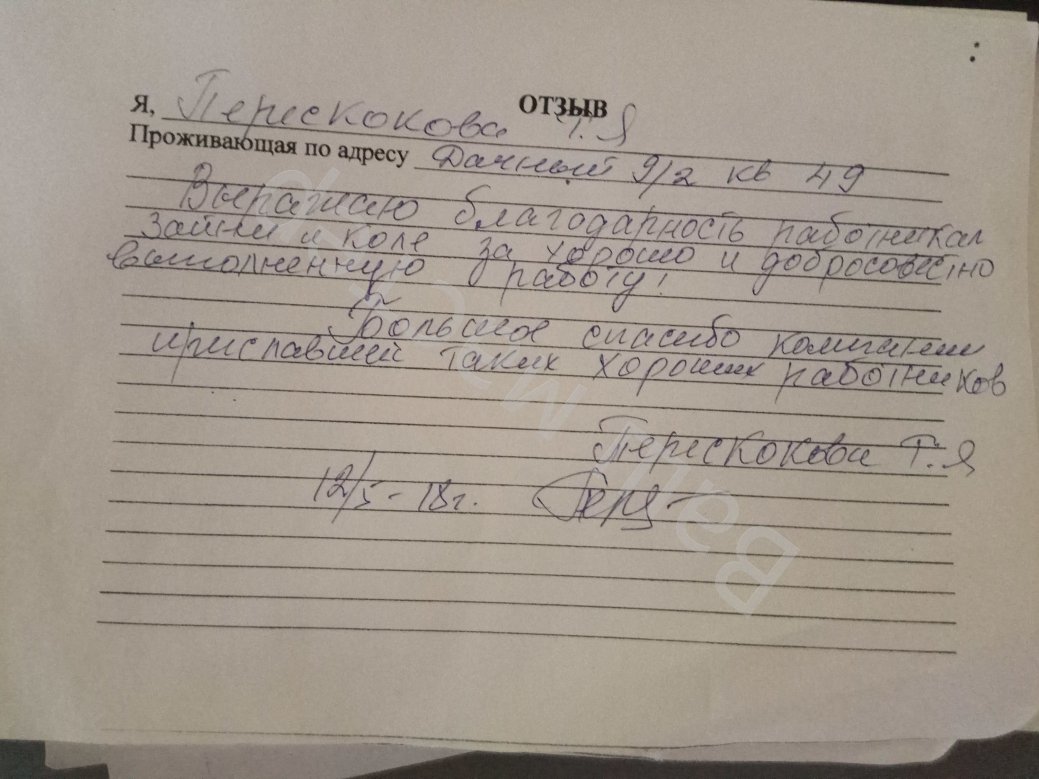 ОТЗЫВ
Я, Перескокова Т.Я
Проживающая по адресу Дачный 9/2 кв 49
Выражаю благодарность работникам
и Коле за хорошо и добросовестно
выполненную работу!
Большое спасибо компании
приславшей таких хороших работников
Перескокова Т.Я
12/5-18г.
Ваш мастер